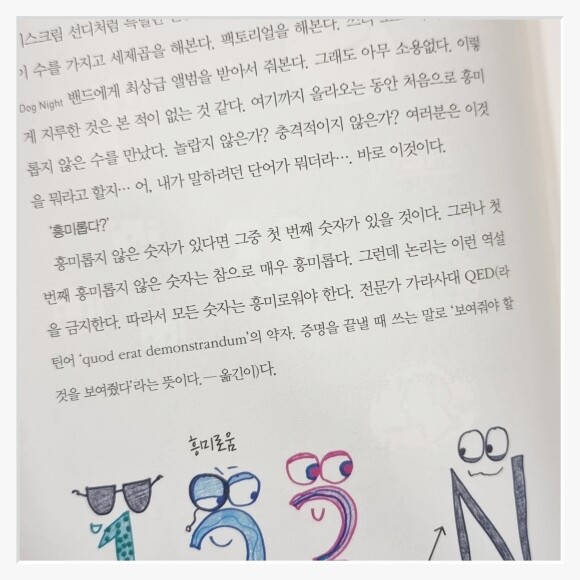 스크림 선디처럼 특별한
수를 가지고 세제곱을 해본다. 팩토리얼을 해본다.
Dog Night 밴드에게 최상급 앨범을 받아서 줘본다. 그래도 아무 소용없다. 이렇
게 지루한 것은 본 적이 없는 것 같다. 여기까지 올라오는 동안 처음으로 흥미
롭지 않은 수를 만났다. 놀랍지 않은가? 충격적이지 않은가? 여러분은 이것
을 뭐라고 할지… 어, 내가 말하려던 단어가 뭐더라…. 바로 이것이다.
‘흥미롭다?’
흥미롭지 않은 숫자가 있다면 그중 첫 번째 숫자가 있을 것이다. 그러나 첫
번째 흥미롭지 않은 숫자는 참으로 매우 흥미롭다. 그런데 논리는 이런 역설
을 금지한다. 따라서 모든 숫자는 흥미로워야 한다. 전문가 가라사대 QED(라
틴어 ‘quod erat demonstrandum’의 약자. 증명을 끝낼 때 쓰는 말로 ‘보여줘야 할
것을 보여줬다’라는 뜻이다.—옮긴이)다.
흥미로움
1 2 3 N